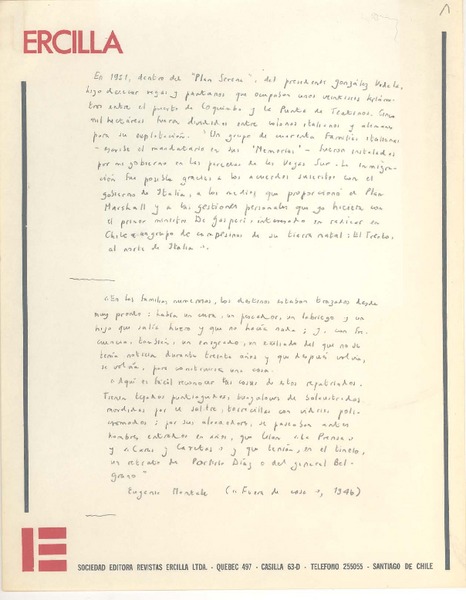 ERCILLA
En 1951, dentro del "Plan Serena", del presidente González Videla,
hizo desecar vegas y pantanos que ocupaban unos veintiseis kilóme-
tros entre el puerto de Coquimbo y la Punta de Teatinos. Cinco
mil hectáreas fueron divididas entre colonos italianos y alemanes
para su explotación. "Un grupo de cuarenta familias italianas
- escribe el mandatario en sus "Memorias" - fueron instaladas
por mi gobierno en las parcelas de las Vegas Sur. La inmigra-
ción fue posible gracias a los acuerdos suscritos con el
gobierno de Italia, a los medios que proporcionó el Plan
Marshall y a las gestiones personales que yo hiciera con
el primer ministro De Gasperi, interesado en radicar en
Chile a un grupo de campesinos de su tierra natal: El Trento,
al norte de Italia".
"En las familias numerosas, los destinos estaban trazados desde
muy pronto: había un cura, un pescador, un labriego y un
hijo que salía huero y que no hacía nada; y, con fre-
cuencia, también, un emigrado, un exiliado del que no se
tenía noticias durante treinta años y que después volvía,
se volvía, para construirse una casa.
"Aquí es fácil reconocer las casas de estos repatriados.
Tienen tejados puntiagudos, bungalows de balaustradas
mordidas por el salitre, torrecillas con vidrios poli-
cromados; por sus alrededores, se paseaban antes
hombres entrados en años, que leían "La Prensa"
y "Caras y Caretas" y que tenían, en el tinelo,
un retrato de Porfirio Díaz o del general Bel-
grano"
Eugenio Montale ("Fuera de casa", 1946)
SOCIEDAD EDITORA REVISTAS ERCILLA LTDA. - QUEBEC 497 - CASILLA 63-D - TELEFONO 255055 - SANTIAGO DE CHILE